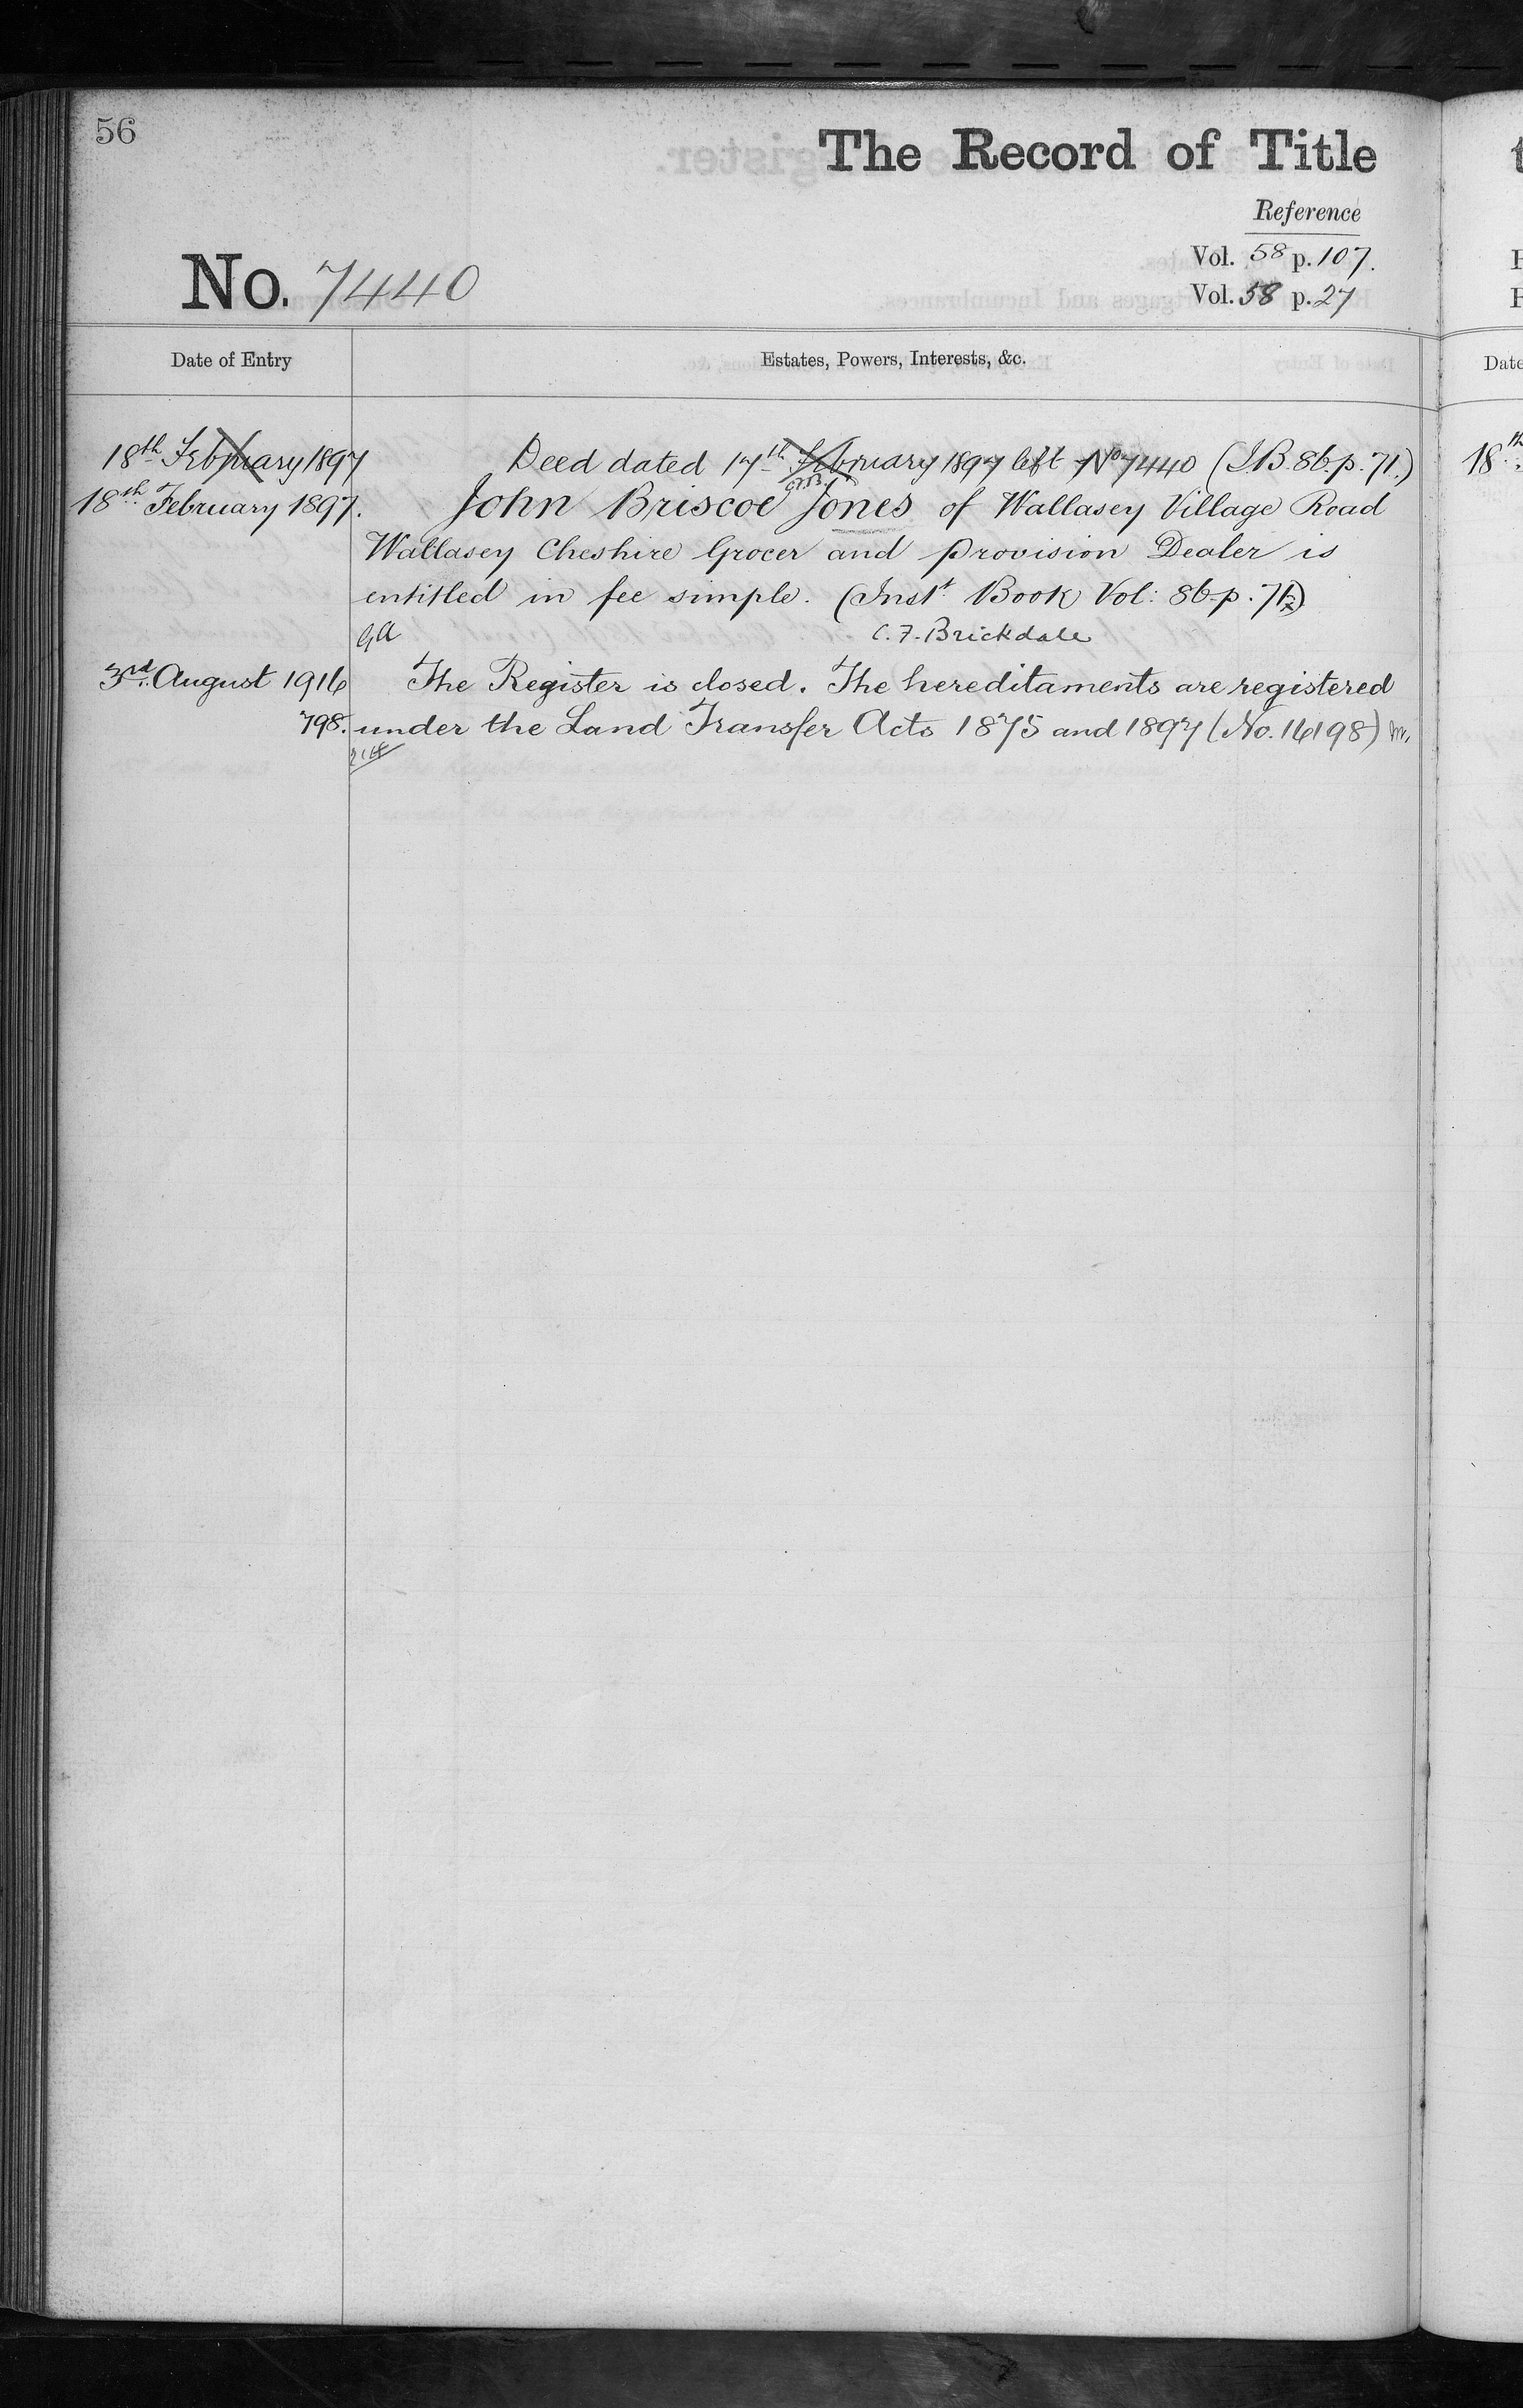 56
The Record of Title
Reference
Vol. 58 p. 107.
No. 7440
Vol. 58 p. 27
Date of Entry
Estates, Powers, Interests, &c.
Date
18th February 1897
Deed dated 17th February 1897 left No 7440 (I.B. 86. p. 71.)
18th
18th February 1897.
John Briscoe Jones of Wallasey Village Road
Wallasey Cheshire Grocer and Provision Dealer is
entitled in fee simple. (Inst. Book Vol: 86 p. 71)
GA
C. F. Brickdale
3rd August 1916
The Register is closed. The hereditaments are registered
798.
under the Land Transfer Acts 1875 and 1897 (No. 16198)